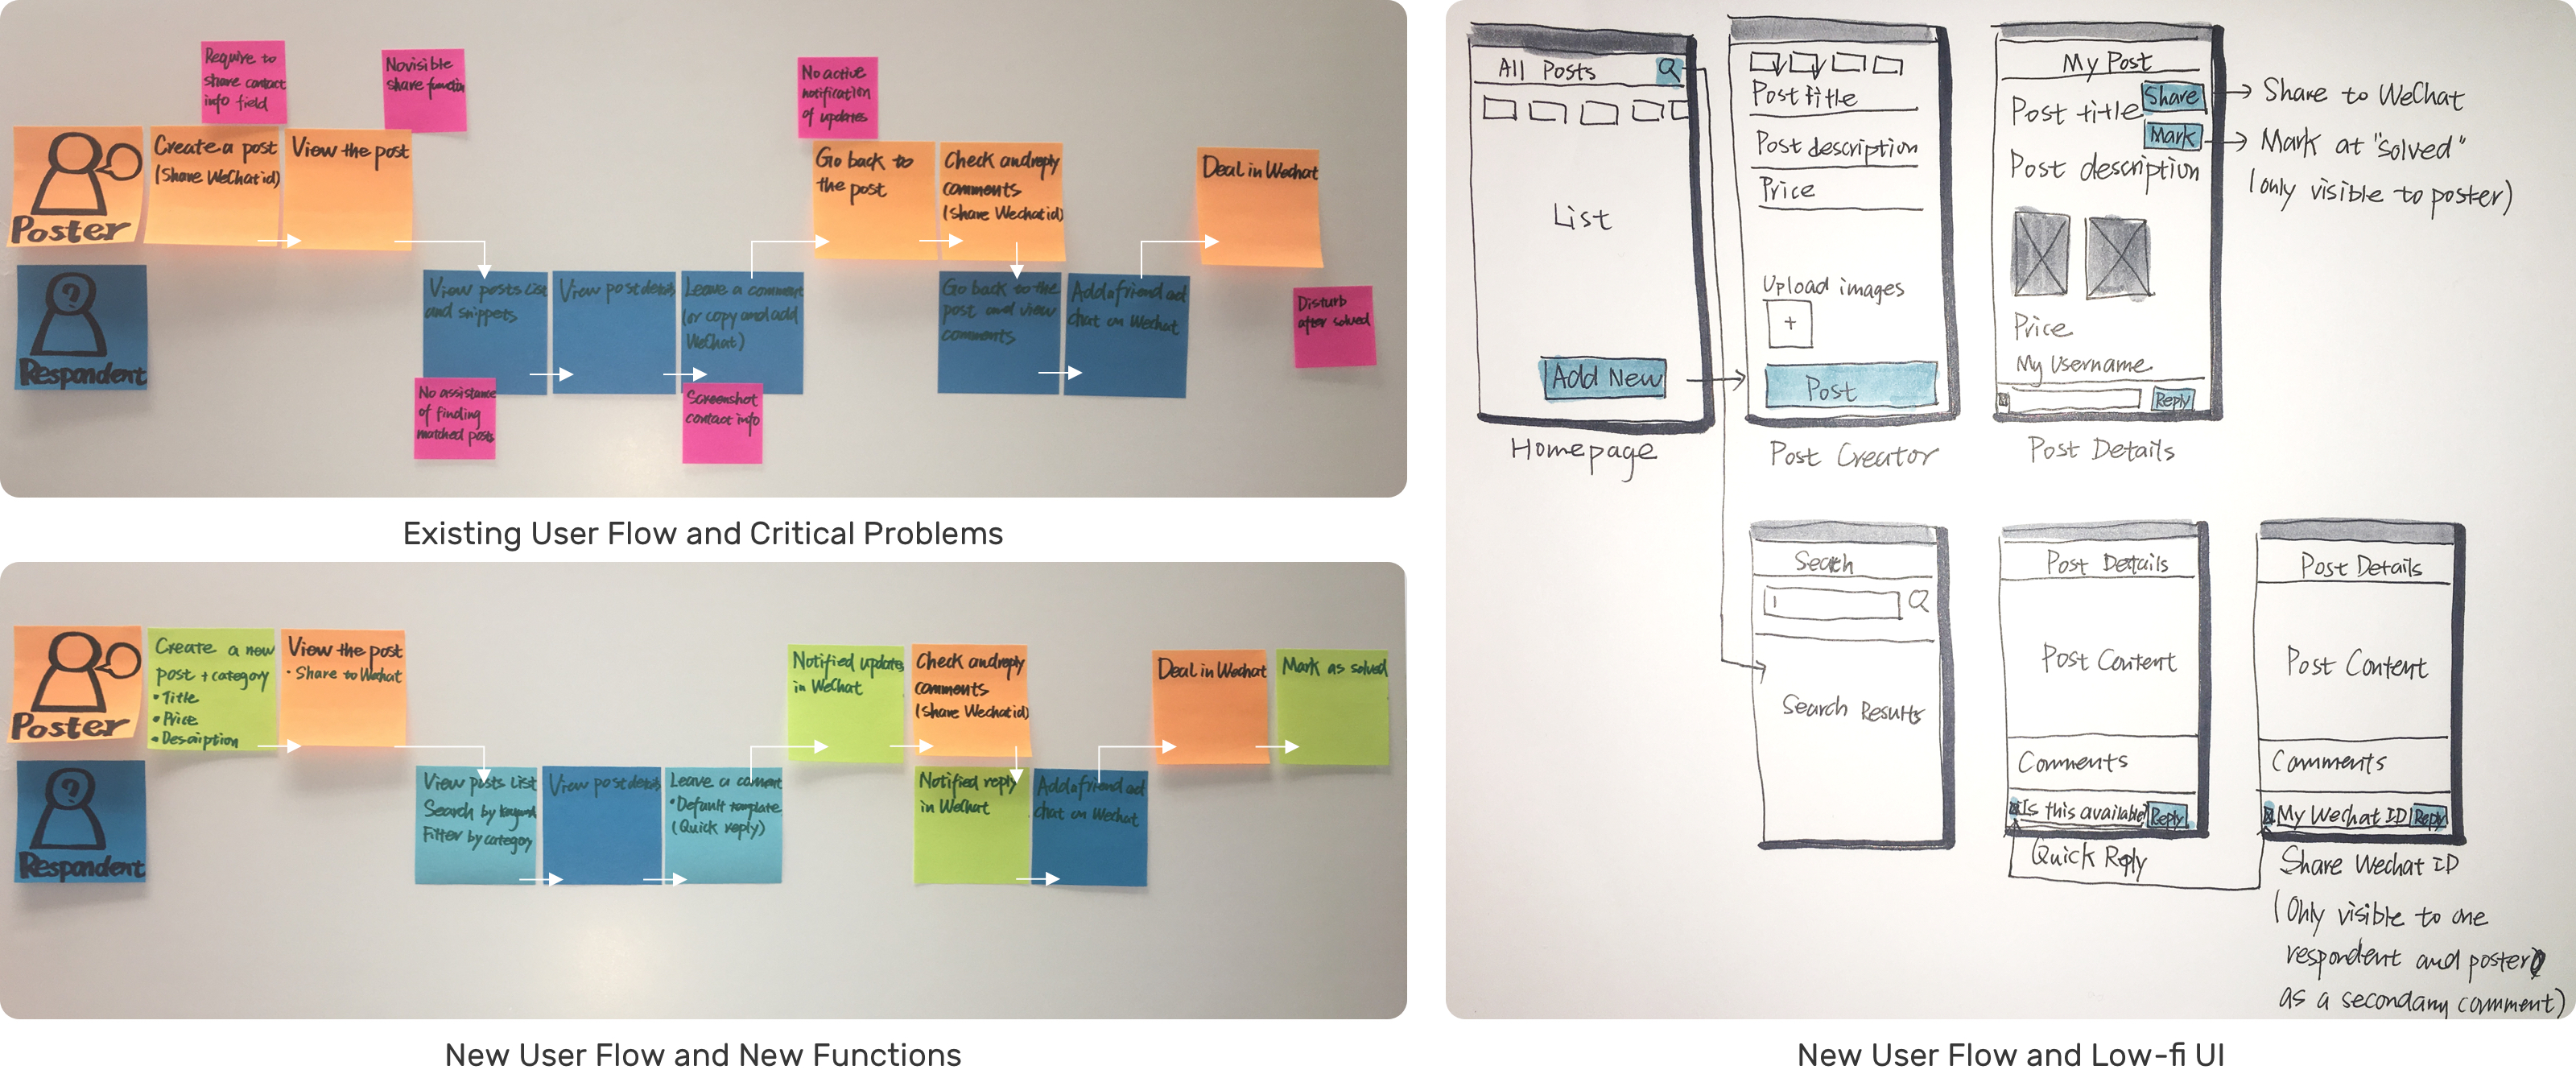 Require to
share contact
info field
Novisible
share function
No active
notification
of updates
Poster
Create a post
(Share WeChat id)
View the post
Go back to
the post
Check and reply
comments
(Share Wechat id)
Deal in Wechat
Respondent
View posts List
and snippets
View post details
Leave a comment
(or copy and add
WeChat)
Go back to the
post and view
comments
Add a friend ad
chat on Wechat
Disturb
after solved
No assistance
of finding
matched posts
Screenshot
contact info
Existing User Flow and Critical Problems
Poster
Create a new
post + category
• Title
• Price
• Description
View the post
• Share to Wechat
Notified updates
in WeChat
Check and reply
comments
(Share Wechat id)
Deal in Wechat
Mark as solved
Respondent
View posts List
Search by keyword
Filter by category
View post details
Leave a comment
• Default template
(Quick reply)
Notified reply
in WeChat
Add a friend ad
chat on Wechat
New User Flow and New Functions
All Posts
List
Add New
Homepage
Post title
Post description
Price
Upload images
+
Post
Post Creator
My Post
Post title
Share
Mark
Post description
Price
My Username
Reply
Post Details
Share to WeChat
Mark at "solved"
(only visible to poster)
Search
Search Results
Post Details
Post Content
Comments
Is this available
Reply
Quick Reply
Post Details
Post Content
Comments
My Wechat ID
Reply
Share Wechat ID
(Only visible to one
respondent and poster
as a secondary comment)
New User Flow and Low-fi UI